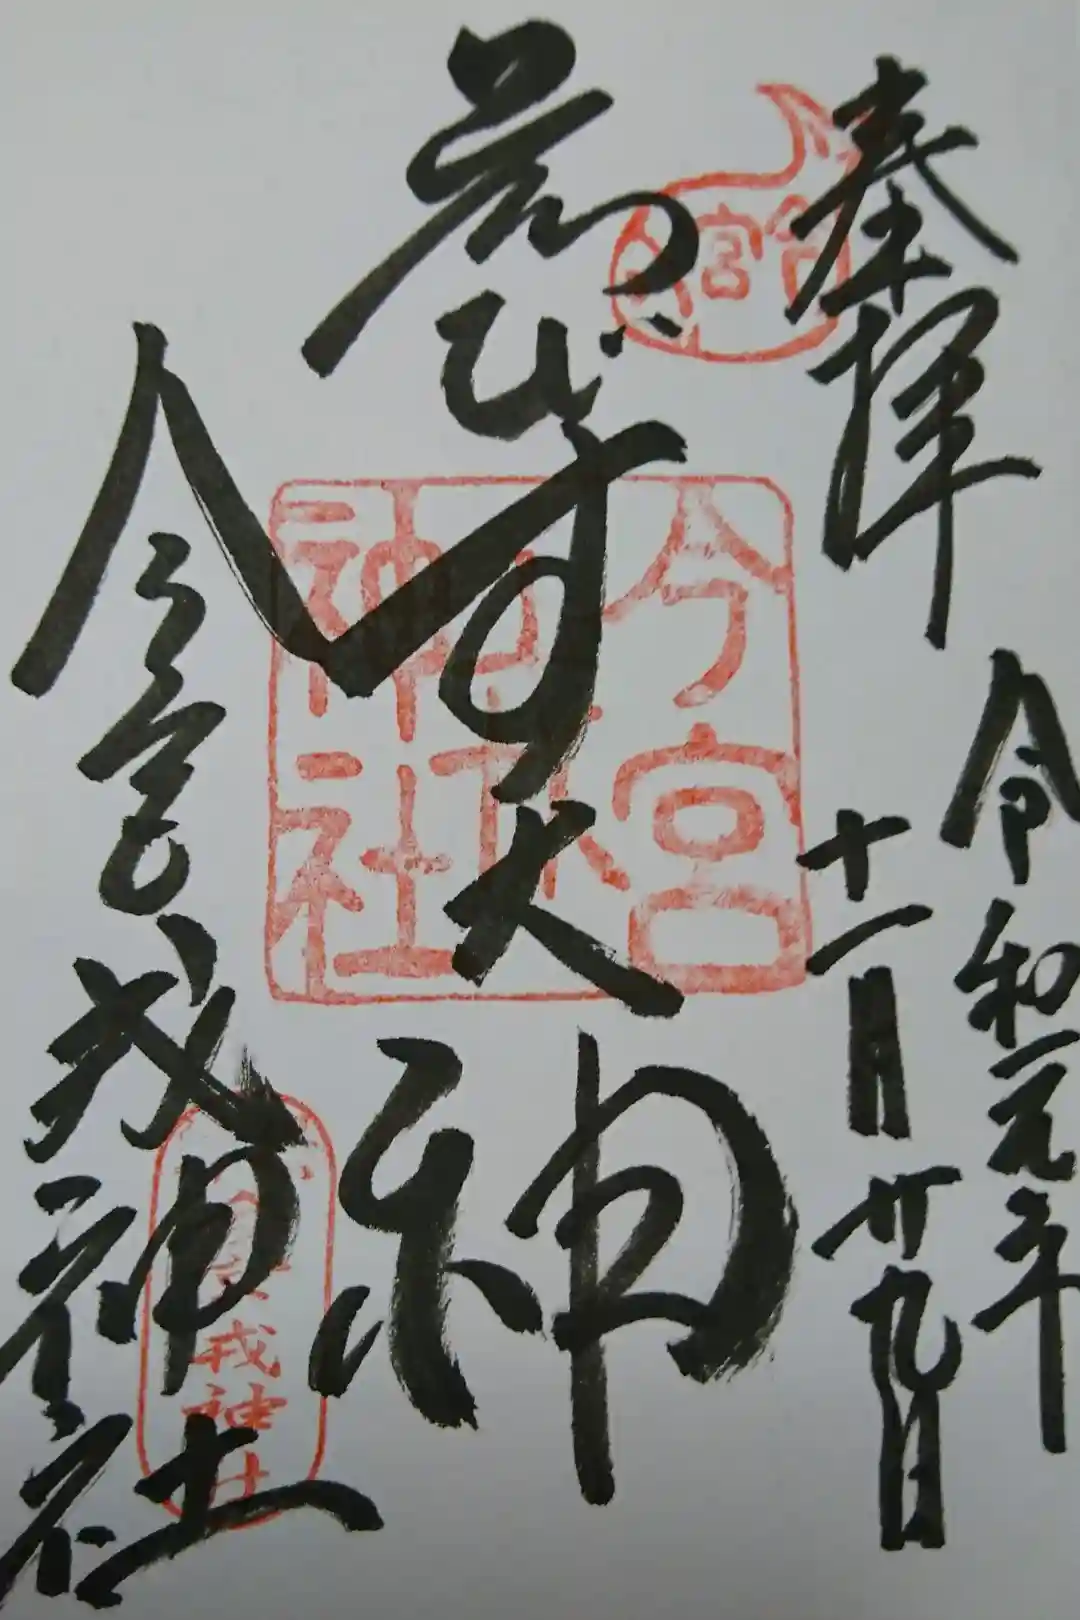 奉拝
令和元年
十一月廿九日
びす大神
今宮戎神社
今宮
神社
今宮
戎神社